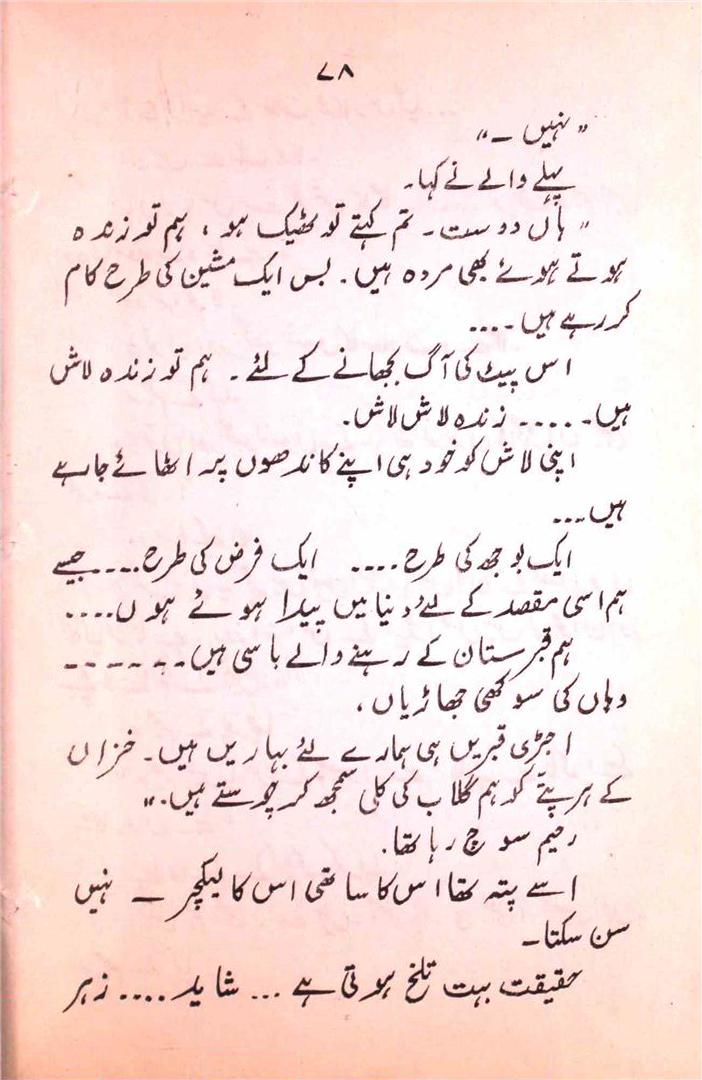 ۷۸
"نہیں ۔"
پہلے والے نے کہا۔
"ہاں دوست۔ تم کہتے تو ٹھیک ہو ، ہم تو زندہ
ہوتے ہوئے بھی مردہ ہیں۔ بس ایک مشین کی طرح کام
کر رہے ہیں ۔...
اس پیٹ کی آگ بجھانے کے لئے ۔ ہم تو زندہ لاش
ہیں۔ .... زندہ لاش لاش۔
اپنی لاش کو خود ہی اپنے کاندھوں پہ اٹھائے جا رہے
ہیں ...
ایک بوجھ کی طرح .... ایک فرض کی طرح ... جیسے
ہم اسی مقصد کے لئے دنیا میں پیدا ہوئے ہوں ....
ہم قبرستان کے رہنے والے باسی ہیں ۔------
وہاں کی سوکھی جھاڑیاں ،
اجڑی قبریں ہی ہمارے لئے بہاریں ہیں۔ خزاں
کے ہر پتّے کو ہم گلاب کی کلی سمجھ کر چوستے ہیں۔"
رحیم سوچ رہا تھا۔
اسے پتہ تھا اس کا ساتھی اس کا لیکچر ۔ نہیں
سن سکتا۔
حقیقت بہت تلخ ہوتی ہے ... شاید .... زہر